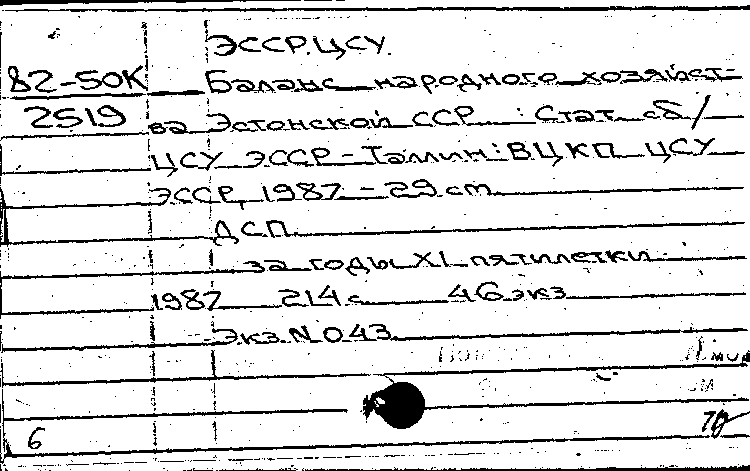 ЭССР. ЦСУ.
82-50К Баланс народного хозяйст-
2519 ва Эстонской ССР : Стат. сб /
ЦСУ ЭССР - Таллин : ВЦ КП ЦСУ
ЭССР, 1987 - 29 см.
ДСП.
за годы XI пятилетки.
1987 214 с. 46 экз
Экз. N 043
6